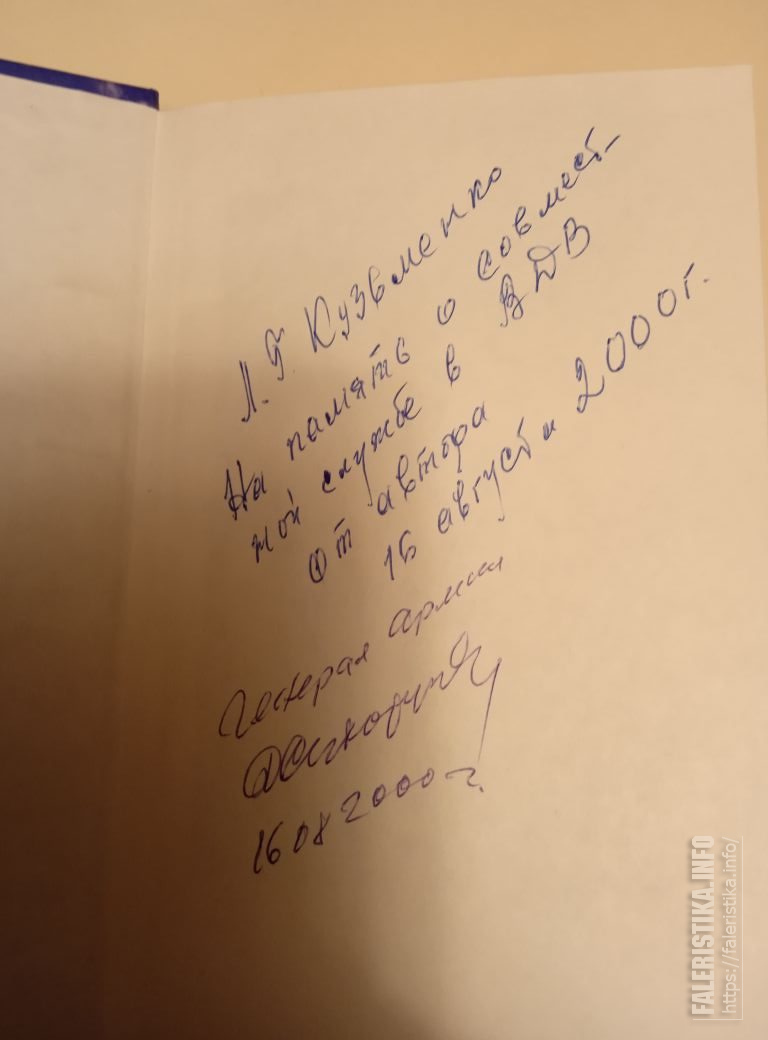 Л. Г. Кузьменко
На память о совмест-
ной службе в ВДВ
От автора
16 августа 2000г.
Генерал армии
16 08 2000 г.
FALERISTIKA.INFO
https://faleristika.info/